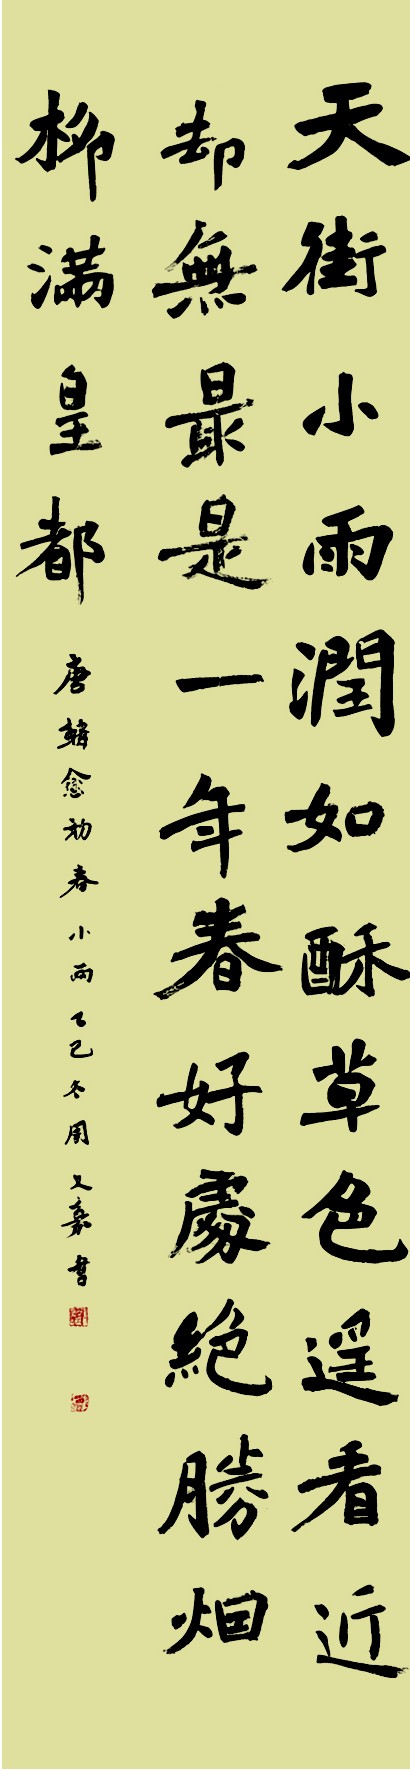 天街小雨潤如酥草色遥看近
却無最是一年春好處絕勝烟
柳满皇都
唐韓愈初春小雨乙巳冬周文嘉書